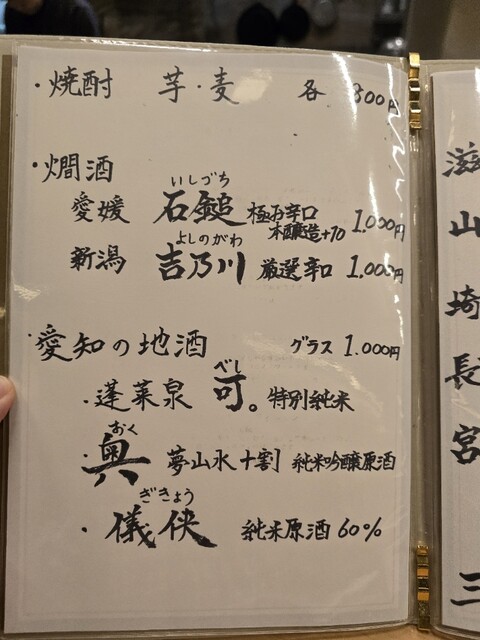 ・焼酎 芋・麦 各 800円
・燗酒
いしづち
愛媛 石鎚 極み辛口 1,000円
本醸造+10
よしのがわ
新潟 吉乃川 厳選辛口 1,000円
・愛知の地酒 グラス 1.000円
べし
・蓬莱泉 可。 特別純米
おく
・奥 夢山水十割 純米吟醸原酒
ぎきょう
・儀侠 純米原酒 60%
滋
山
埼
長
宮
三